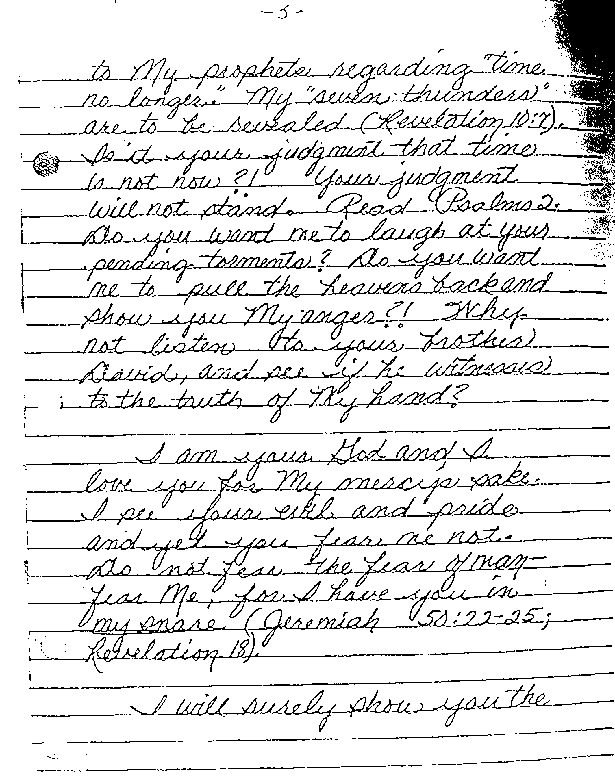 -5-
to My prophets regarding "time
no longer." My "seven thunders"
are to be revealed (Revelation 10:7).
Is it your judgment that time
is not now?! Your judgment
will not stand. Read Psalms 2.
Do you want me to laugh at your
pending torments? Do you want
me to pull the heavens back and
show you My anger?! Why
not listen to your brother
David, and see if he witnesses
to the truth of My hand?
I am your God and I
love you for My mercys sake.
I see your evil and pride
and yet you fear me not.
Do not fear the fear of man-
fear Me, for I have you in
my snare (Jeremiah 50:22-25;
Revelation 18).
I will surely show you the